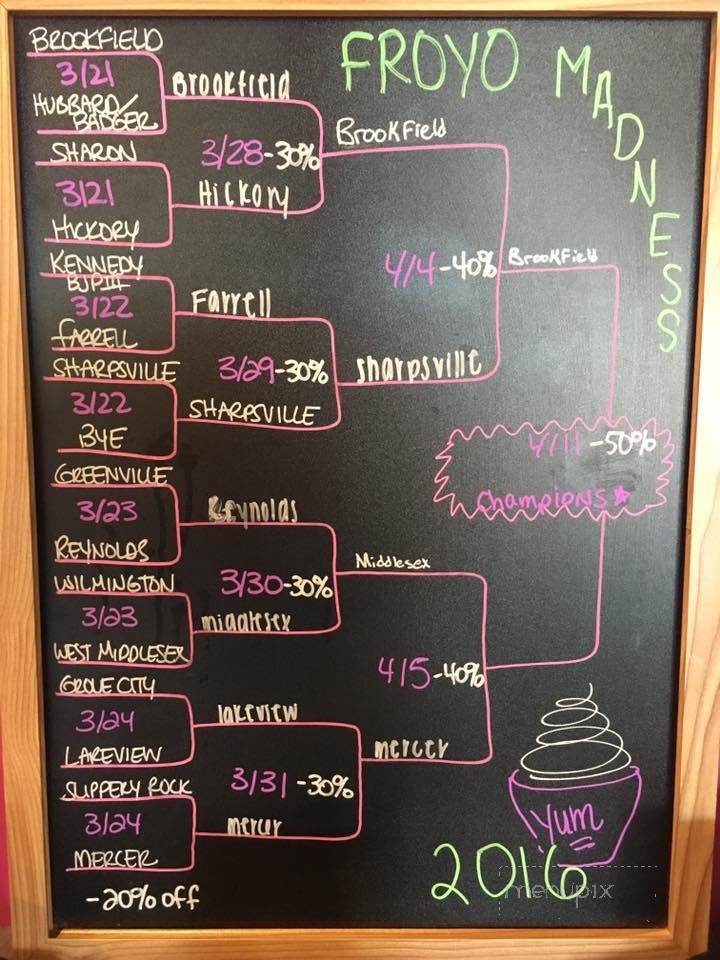 FROYO MADNESS
BROOKFIELD
3/21
HUBBARD/
BADGER
SHARON
3/21
HICKORY
KENNEDY
3/22
FARRELL
SHARPSVILLE
3/22
BYE
GREENVILLE
3/23
REYNOLDS
WILMINGTON
3/23
WEST MIDDLESEX
GROVE CITY
3/24
LAKEVIEW
SLIPPERY ROCK
3/24
MERCER
-20% off
Brookfield
3/28-30%
Hickory
Farrell
3/29-30%
SHARPSVILLE
Reynolds
3/30-30%
middlesex
lakeview
3/31-30%
mercer
Brookfield
4/4-40%
sharpsville
Middlesex
4/5-40%
mercer
Brookfield
4/11-50%
Champions
Yum
2016
menupix